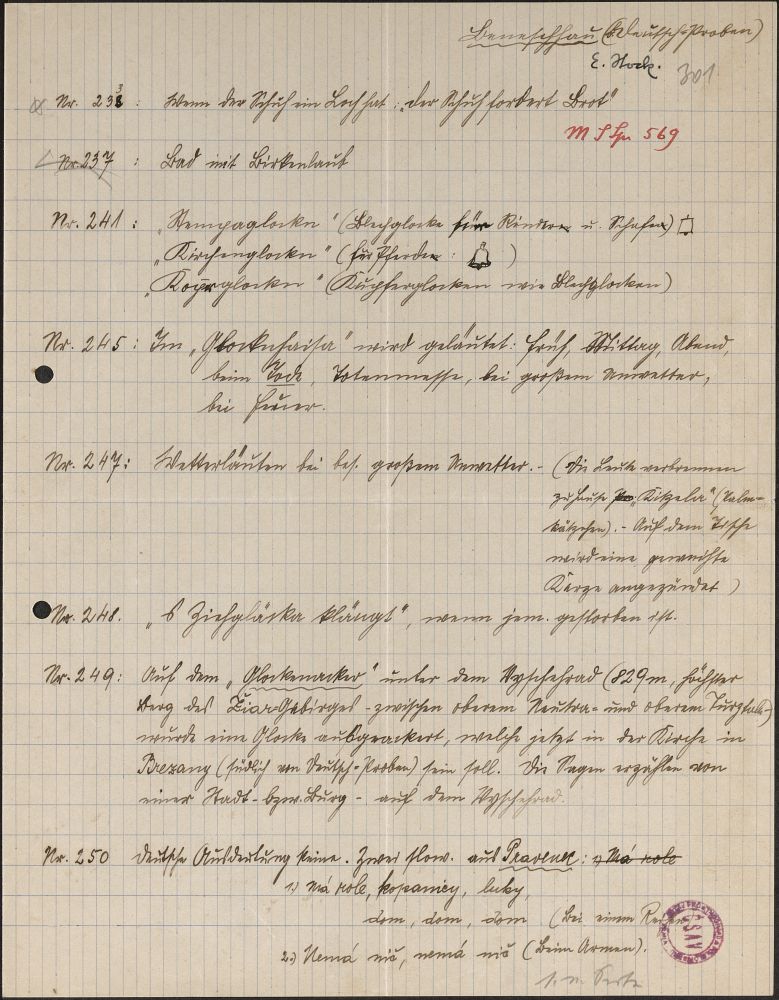 Beneschhau (Deutsch-Proben)
E. Hock.
301
Nr. 233 : Wenn der Schuh ein Loch hat: „der Schuh fordert Brot"
M S 569
Nr. 237 : Bad mit Birkenlaub
Nr. 241 : „Stempaglockn" (Blechglocke für Rinder u. Schafe)
„Kirchenglockn" (für Pferde : )
„Koprglockn" (Kupferglocken wie Blechglocken)
Nr. 245 : Im „Glocknhaisa" wird geläutet: früh, Mittag, Abend,
beim Tode, Totenmesse, bei großem Unwetter,
bei Feuer.
Nr. 247: Wetterläuten bei bes. großem Unwetter. - (Die Leute verbrennen
zu Hause „Kitzela" (Palm-
kätzchen). - Auf dem Tische
wird eine geweihte
Kerze angezündet)
Nr. 248. „s Ziehgläcka klängt", wenn jem. gestorben ist.
Nr. 249: Auf dem „Glockenacker" unter dem Vyschehrad (829 m, höchster
Berg des Žiar-Gebirges - zwischen oberem Neutra- und oberem Turztale)
wurde eine Glocke ausgeackert, welche jetzt in der Kirche in
Brezany (südlich von Deutsch-Proben) sein soll. Die Sagen erzählen von
einer Stadt - bzw. Burg - auf dem Vyschehrad.
Nr. 250 deutsche Ausdeutung keine. Zwei slow. aus Pravenec: 1) Má role
1) má role, kopanicy, luky,
dom, dom, dom (bei einem Reichen)
2.) Nemá nič, nemá nič (beim Armen).
ČSAV